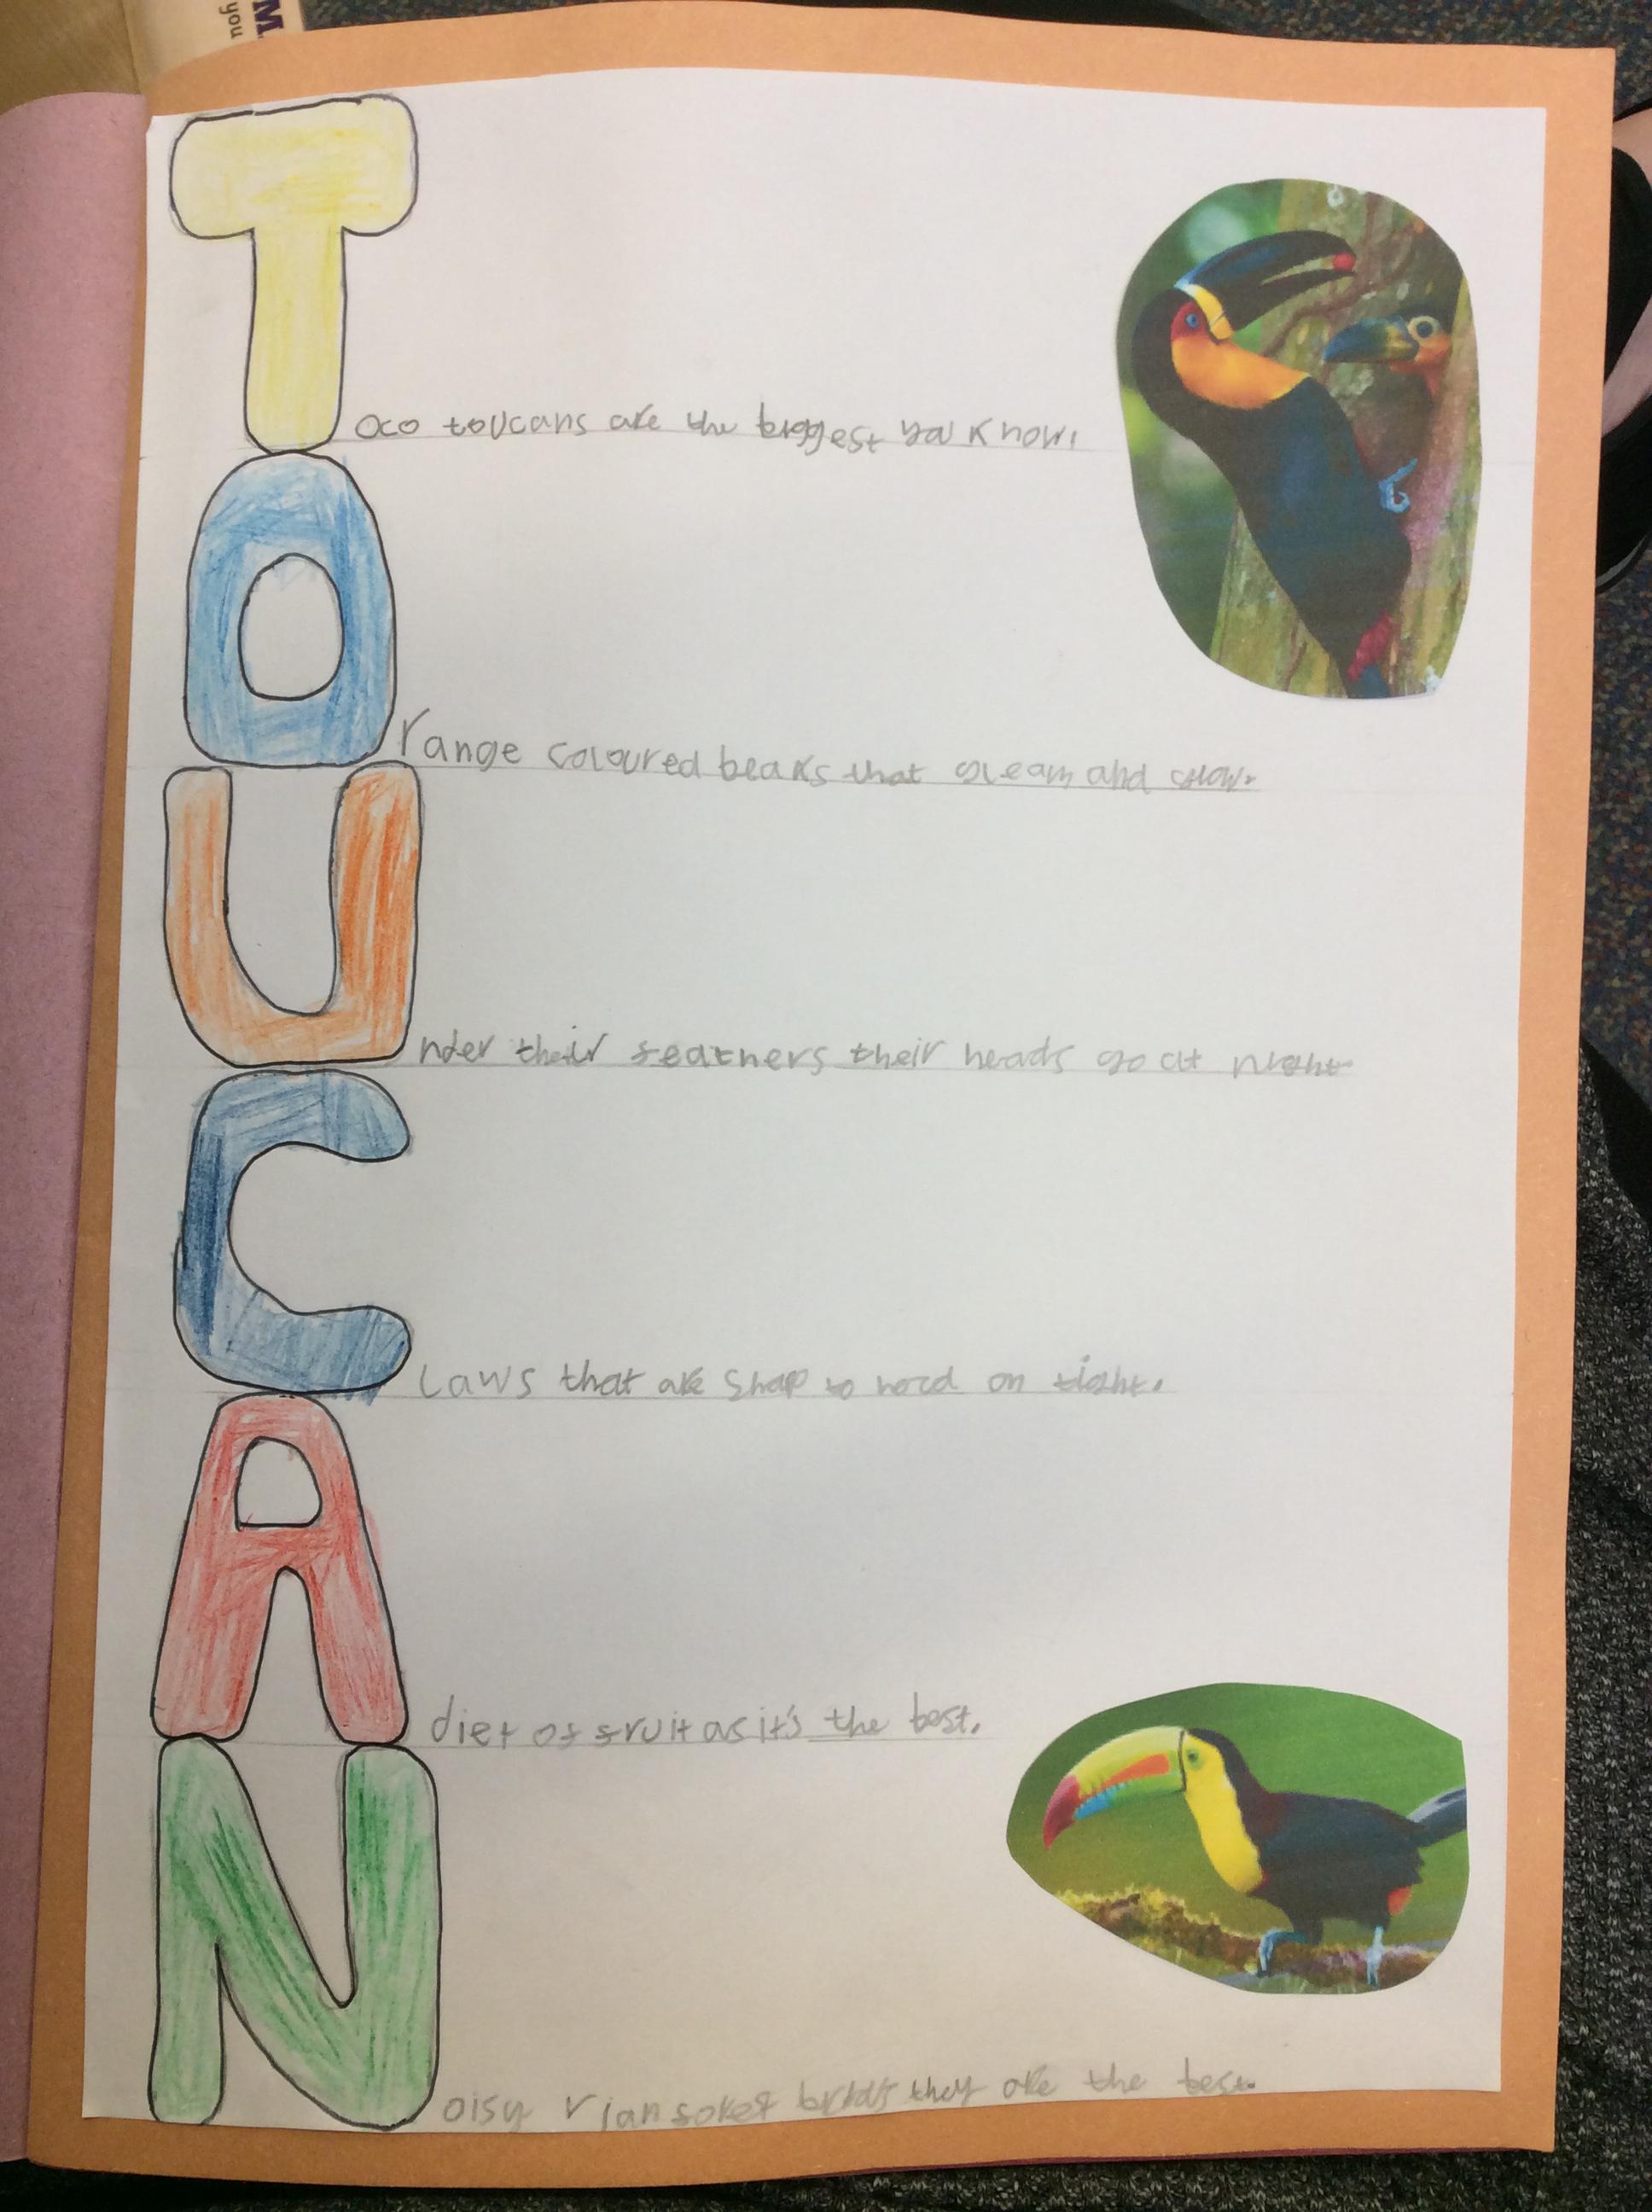 M
you
Toco toucans are the biggest you know.
Orange coloured beaks that gleam and glow.
Under their feathers their heads go at night
Claws that are shap to hold on tight.
A diet of fruit as it's the best.
Noisy rianforest birds they are the best.